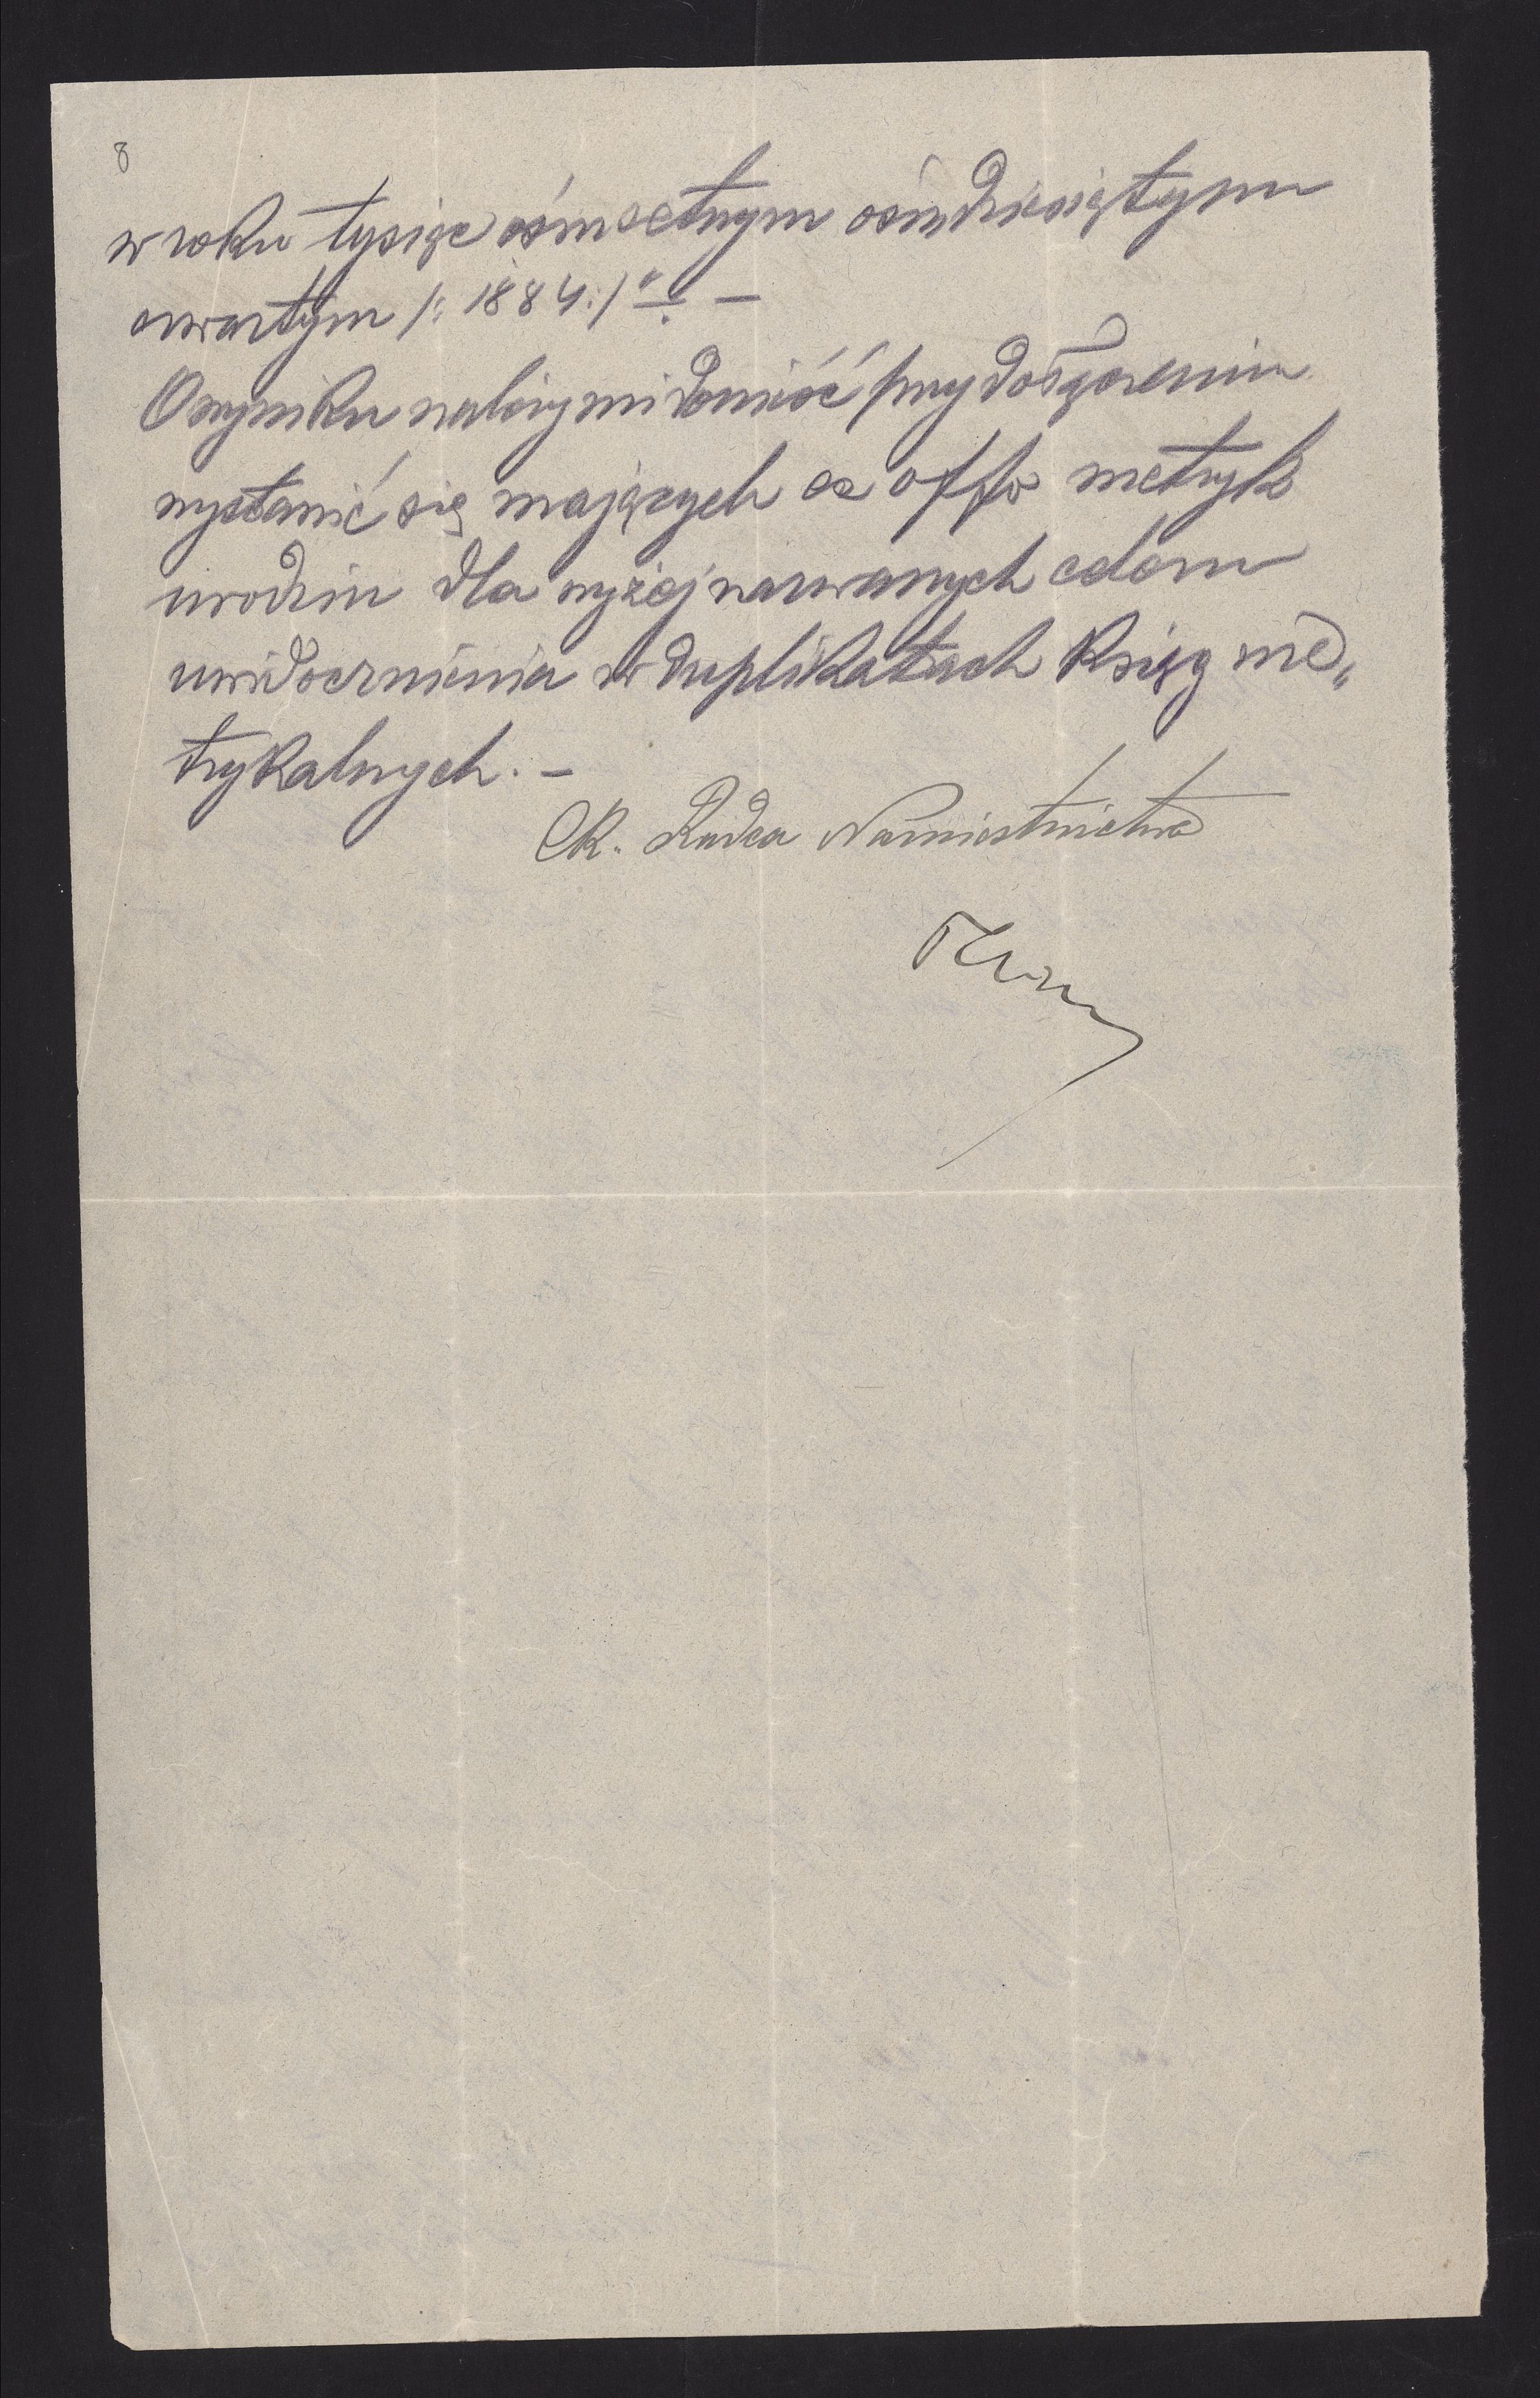 8
w roku tysiąc ośmsetnym ośmdziesiątym
czwartym /: 1884 :/ —
O wyniku należy mi donieść przy dołączeniu
wystawić się mających ex offo metryk
urodzin dla wyżej nazwanych celem
uwidocznienia w duplikatach ksiąg me„
trykalnych. —
CK. Radca Namiestnictwa